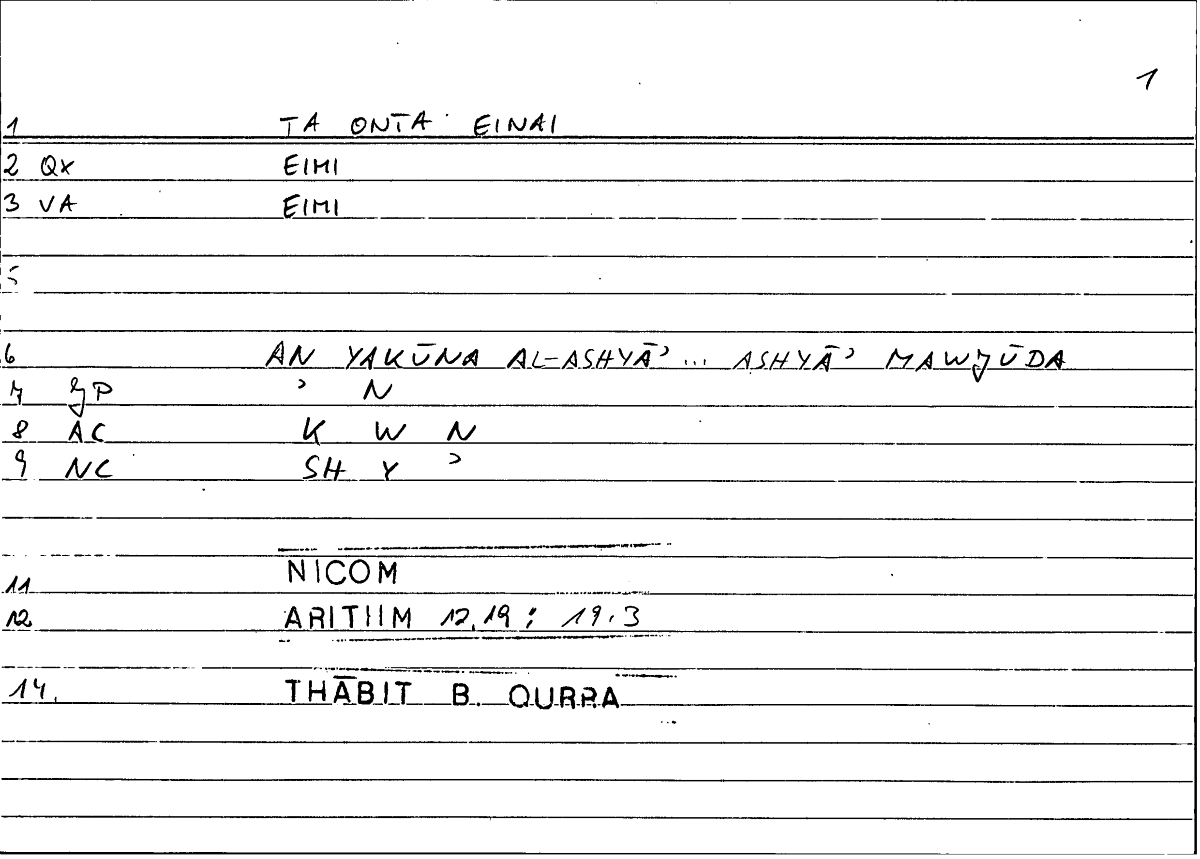 1
1 TA ONTA EINAI
2 QX EIMI
3 VA EIMI
5
6 AN YAKŪNA AL-ASHYĀʾ ... ASHYĀʾ MAWJŪDA
7 JP ʾ N
8 AC K W N
9 NC SH Y ʾ
11 NICOM
12 ARITHM 12,19; 19.3
14. THĀBIT B. QURRA